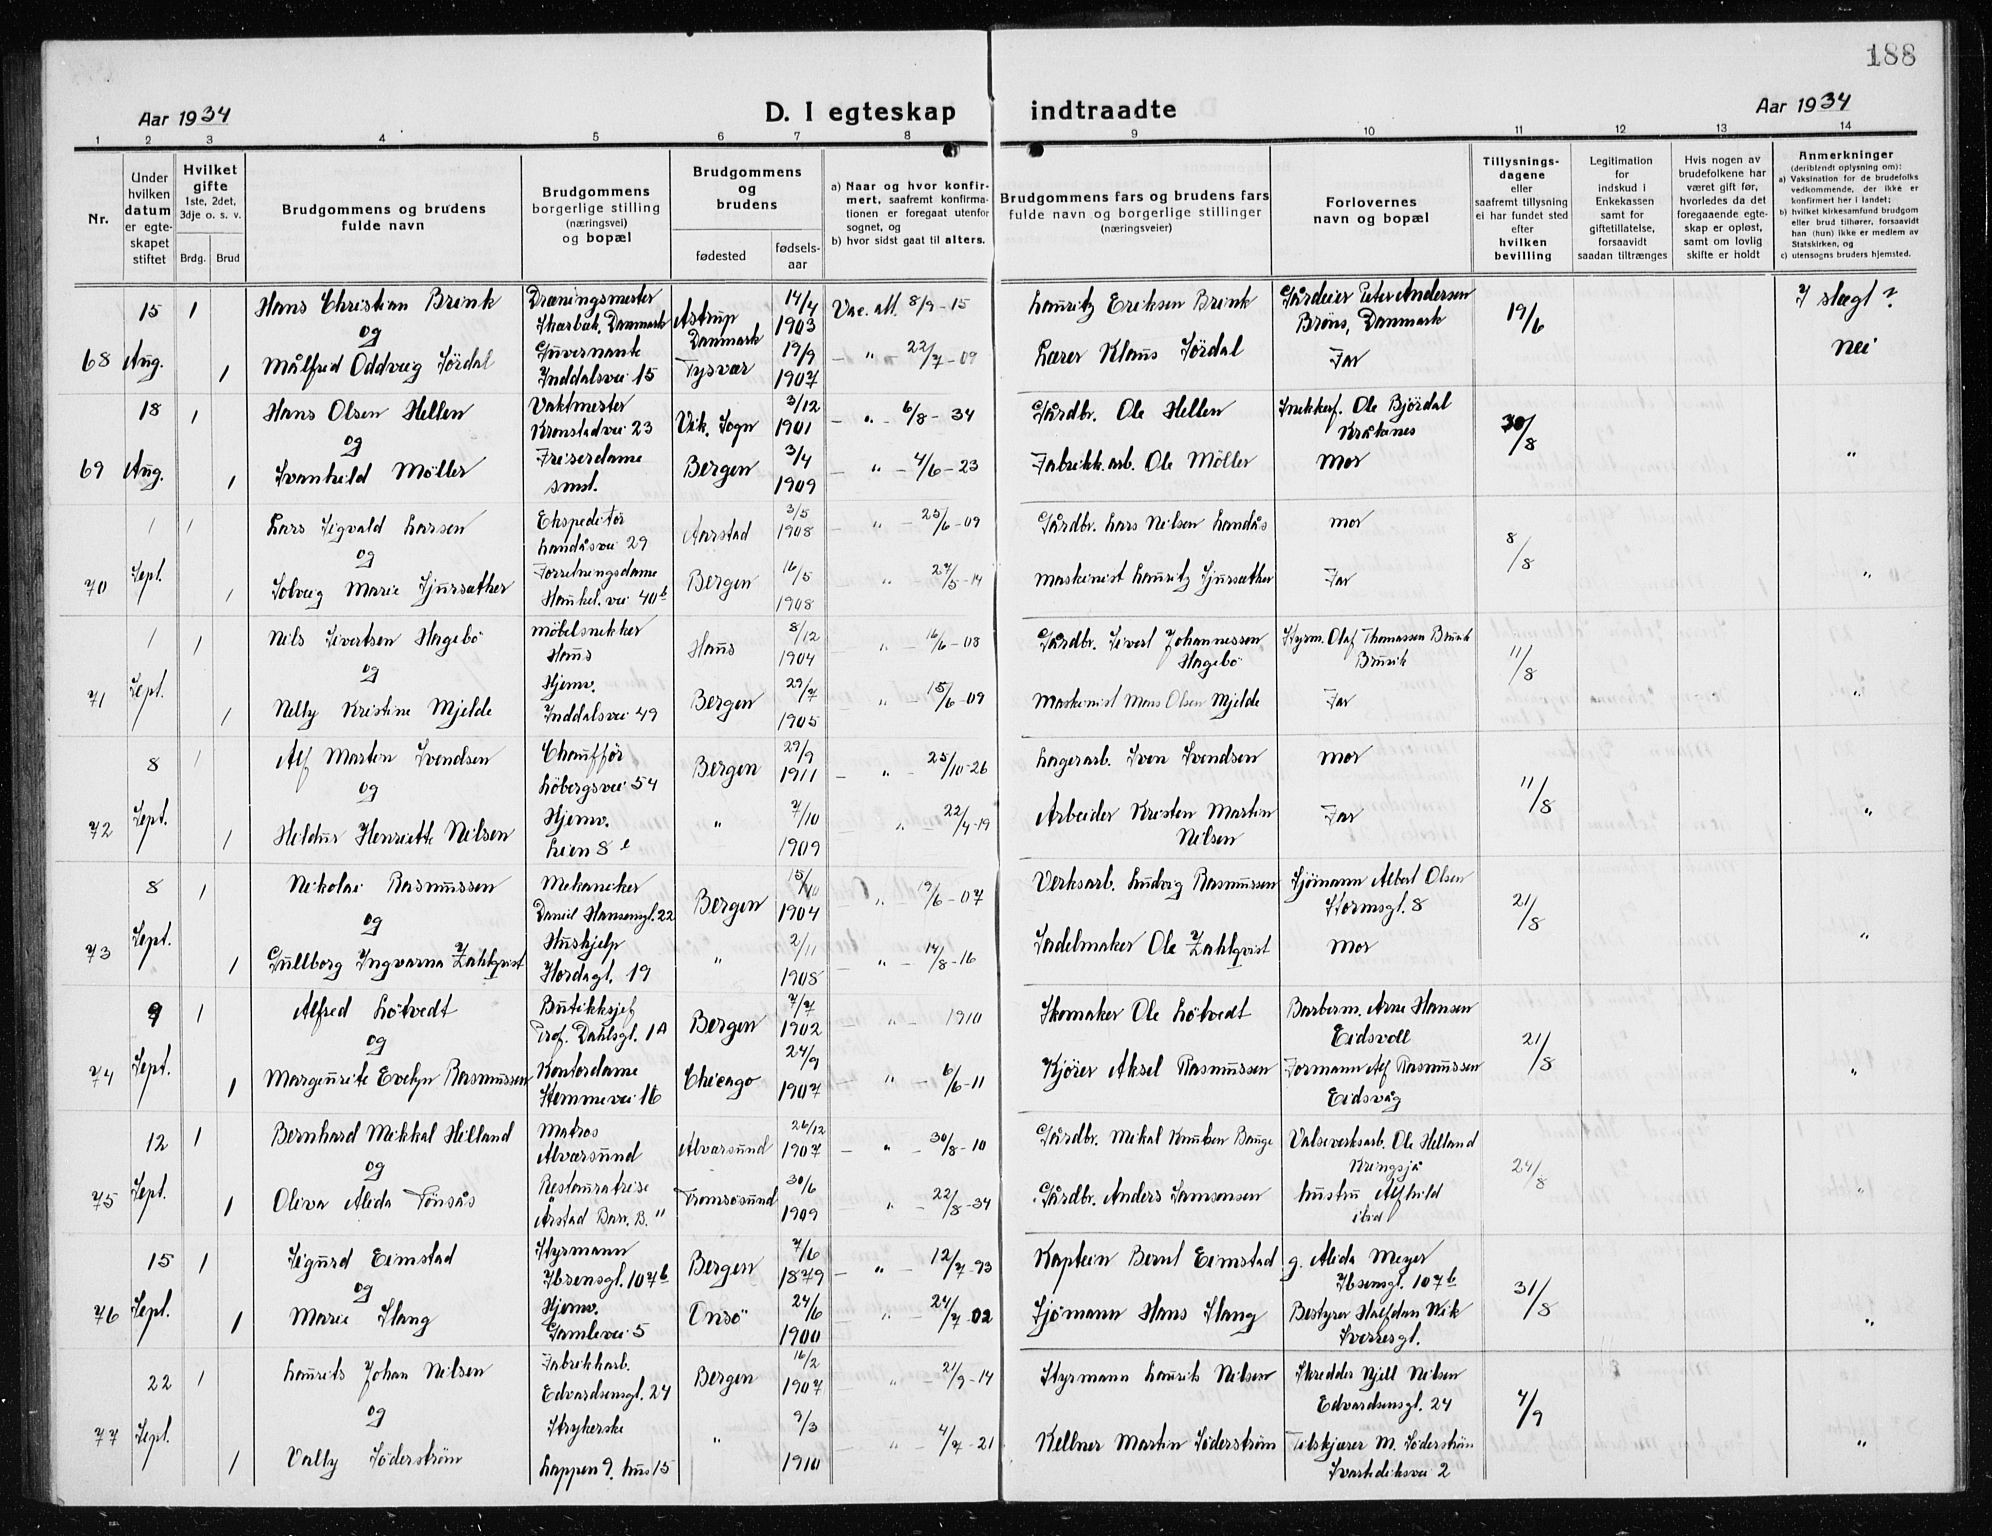 188
Aar 1934
D. I egteskap indtraadte
Aar 1934
1 2 3 4 5 6 7 8 9 10 11 12 13 14
Nr.
Under hvilken datum er egteskapet stiftet
Hvilket gifte 1ste, 2det, 3dje o. s. v.
Brdg. Brud
Brudgommens og brudens fulde navn
Brudgommens borgerlige stilling (næringsvei) og bopæl
Brudgommens og brudens
fødested
fødsels-aar
a) Naar og hvor konfirmert, saafremt konfirmationen er foregaat utenfor sognet, og
b) hvor sidst gaat til alters.
Brudgommens fars og brudens fars fulde navn og borgerlige stillinger (næringsveier)
Forlovernes navn og bopæl
Tillysningsdagene eller saafremt tillysning ei har fundet sted efter hvilken bevilling
Legitimation for indskud i Enkekassen samt for giftetillatelse, forsaavidt saadan tiltrænges
Hvis nogen av brudefolkene har været gift før, hvorledes da det foregaaende egteskap er opløst, samt om lovlig skifte er holdt
Anmerkninger (deriblendt oplysning om):
a) Vaksination for de brudefolks vedkommende, der ikke er konfirmert her i landet;
b) hvilket kirkesamfund brudgom eller brud tilhører, forsaavidt han (hun) ikke er medlem av Statskirken, og
c) utensogns bruders hjemsted.
68 15 Aug. 1 Hans Christian Brink Dræningsmester Skærbæk, Danmark Astrup Danmark 14/4 1903 Vac. att. 8/9-15 Lauritz Eriksen Brink Gårdeier Peter Andersen Brøns, Danmark 19/6 I slægt?
og
1 Målfred Oddveig Sördal Guvernante Inddalsvei 15 Tysvær 19/9 1907 — " — 22/7-09 Lærer Klaus Sördal Far nei
69 18 Aug. 1 Hans Olsen Hellen Vaktmester Kronstadvei 23 Vik, Sogn 3/12 1901 — " — 6/8-34 Gårdbr. Ole Hellen Snekkerf. Ole Björdal Kråkenes 30/8
og
1 Svanhild Möller Friserdame smst. Bergen 3/4 1909 — " — 4/6-23 Fabrikk.arb. Ole Möller Mor "
70 1 Sept. 1 Lars Sigvald Larsen Ekspeditör Landåsvei 29 Aarstad 3/5 1908 — " — 25/6-09 Gårdbr. Lars Nilsen Landås mor 8/8
og
1 Solveig Marie Sjursæther Forretningsdame Haukel. vei 40b Bergen 16/5 1908 " 27/5-14 Maskinist Lauritz Sjursæther Far "
71 1 Sept. 1 Nils Sivertsen Hagebö Möbelsnekker Haus Haus 8/12 1904 — " — 16/6-08 Gårdbr. Sivert Johannessen Hagebö Styrm. Olaf Thomassen Bruvik Bruvik 11/8
og
1 Nelly Kristine Mjelde Hjemv. Inddalsvei 49 Bergen 29/7 1905 — " — 15/6-09 Maskinist Mons Olsen Mjelde Far "
72 8 Sept. 1 Alf Martin Svendsen Chauffør Löbergsvei 54 Bergen 29/9 1911 — " — 25/10-26 Lagerarb. Sven Svendsen mor 11/8
og
1 Hildur Henriette Nilsen Hjemv. Lien 8 " 7/10 1909 " — 22/4-19 Arbeider Kristen Martin Nilsen Far "
73 8 Sept. 1 Nikolai Rasmussen Mekaniker Daniel Hansensgt. 22 Bergen 15/10 1904 — " — 19/6-07 Verksarb. Ludvig Rasmussen Sjömann Albert Olsen Stormsgt. 8 21/8
og
1 Gullborg Ingvarna Zahlqvist Hushjelp Hordagt. 19 " 2/11 1908 — " — 14/8-16 Sadelmaker Ole Zahlqvist Mor "
74 9 Sept. 1 Alfred Lötvedt Butikksjef Prof. Dahlsgt. 1A Bergen 7/7 1902 — " — 1910 Skomaker Ole Lötvedt Barberm. Arne Hansen Eidsvoll 21/8
og
1 Margeurite Evelyn Rasmussen Kontordame Stemmevei 16 Chicago 24/9 1907 — " — 6/6-11 Kjörer Aksel Rasmussen Formann Alf Rasmussen Eidsvåg "
75 12 Sept. 1 Bernhard Mikkal Helland Matros Alversund Alversund 26/12 1907 — " — 30/8-10 Gårdbr. Mikal Knutsen Bauge Valseverksarb. Ole Helland Kringsjå 24/8
og
1 Oliva Alida Tönsås Restauratrise Årstad Barn. B. " Tromsösund 30/6 1909 — " — 22/8-34 Gårdbr. Anders Samsonsen hustru Alfhild ibid "
76 15 Sept. 1 Sigurd Eimstad Styrmann Ibsensgt. 107b Bergen 7/6 1879 — " — 12/7-93 Kaptein Bernt Eimstad g. Alida Meyer Ibsensgt. 107b 31/8
og
1 Marie Slang Hjemv. Gamlevei 5 Onsö 24/6 1900 — " — 24/7-02 Sjömann Hans Slang Bestyrer Halfdan Wik Sverresgt. "
77 22 Sept. 1 Laurits Johan Nilsen Fabrikkarb. Edvardsensgt. 24 Bergen 16/2 1907 — " — 21/9-14 Styrmann Laurits Nilsen Skredder Njell Nilsen Edvardsensgt. 24 4/9
og
1 Vally Söderström Strykerske Lappen 9, hus 15 " 9/3 1910 " — 4/7-21 Kellner Martin Söderström Tilskjærer M. Söderström Svartediksvei 2 "